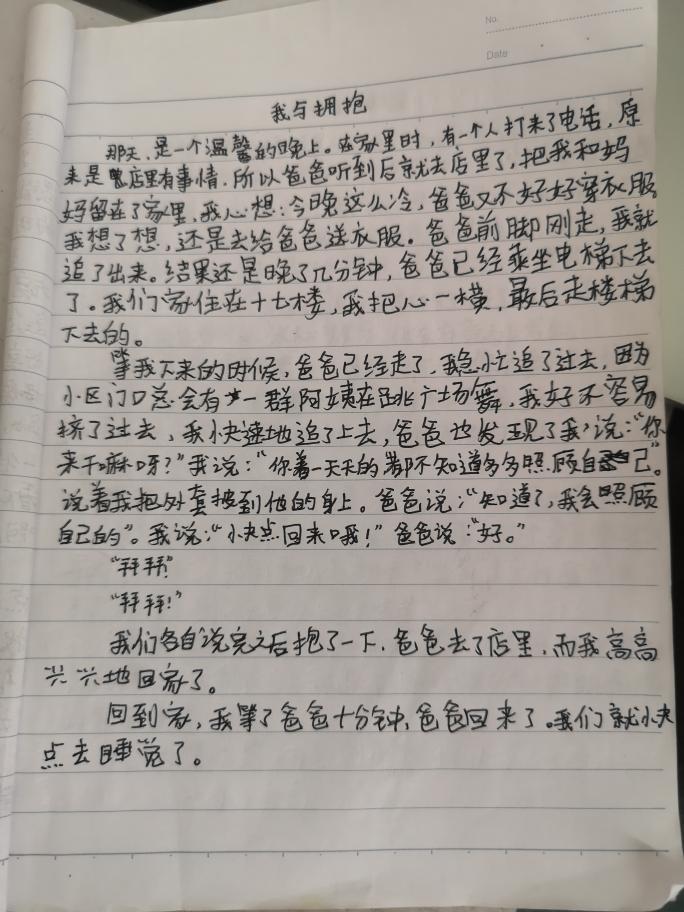 No.
Date
我与拥抱
那天,是一个温馨的晚上。在家里时,有一个人打来了电话,原
来是店里有事情,所以爸爸听到后就去店里了,把我和妈
妈留在了家里,我心想:今晚这么冷,爸爸又不好好穿衣服,
我想了想,还是去给爸爸送衣服。爸爸前脚刚走,我就
追了出来。结果还是晚了几分钟,爸爸已经乘坐电梯下去
了。我们家住在十七楼,我把心一横,最后走楼梯
下去的。
等我下来的时候,爸爸已经走了,我急忙追了过去,因为
小区门口总会有一群阿姨在跳广场舞,我好不容易
挤了过去,我快速地追了上去,爸爸也发现了我,说:“你
来干嘛呀?”我说:“你着一天天的都不知道多多照顾自己。”
说着我把外套披到他的身上。爸爸说:“知道了,我会照顾
自己的”。我说:“快点回来哦!”爸爸说:“好。”
“拜拜!”
“拜拜!”
我们各自说完之后抱了一下,爸爸去了店里,而我高高
兴兴地回家了。
回到家,我等了爸爸十分钟,爸爸回来了。我们就快
点去睡觉了。